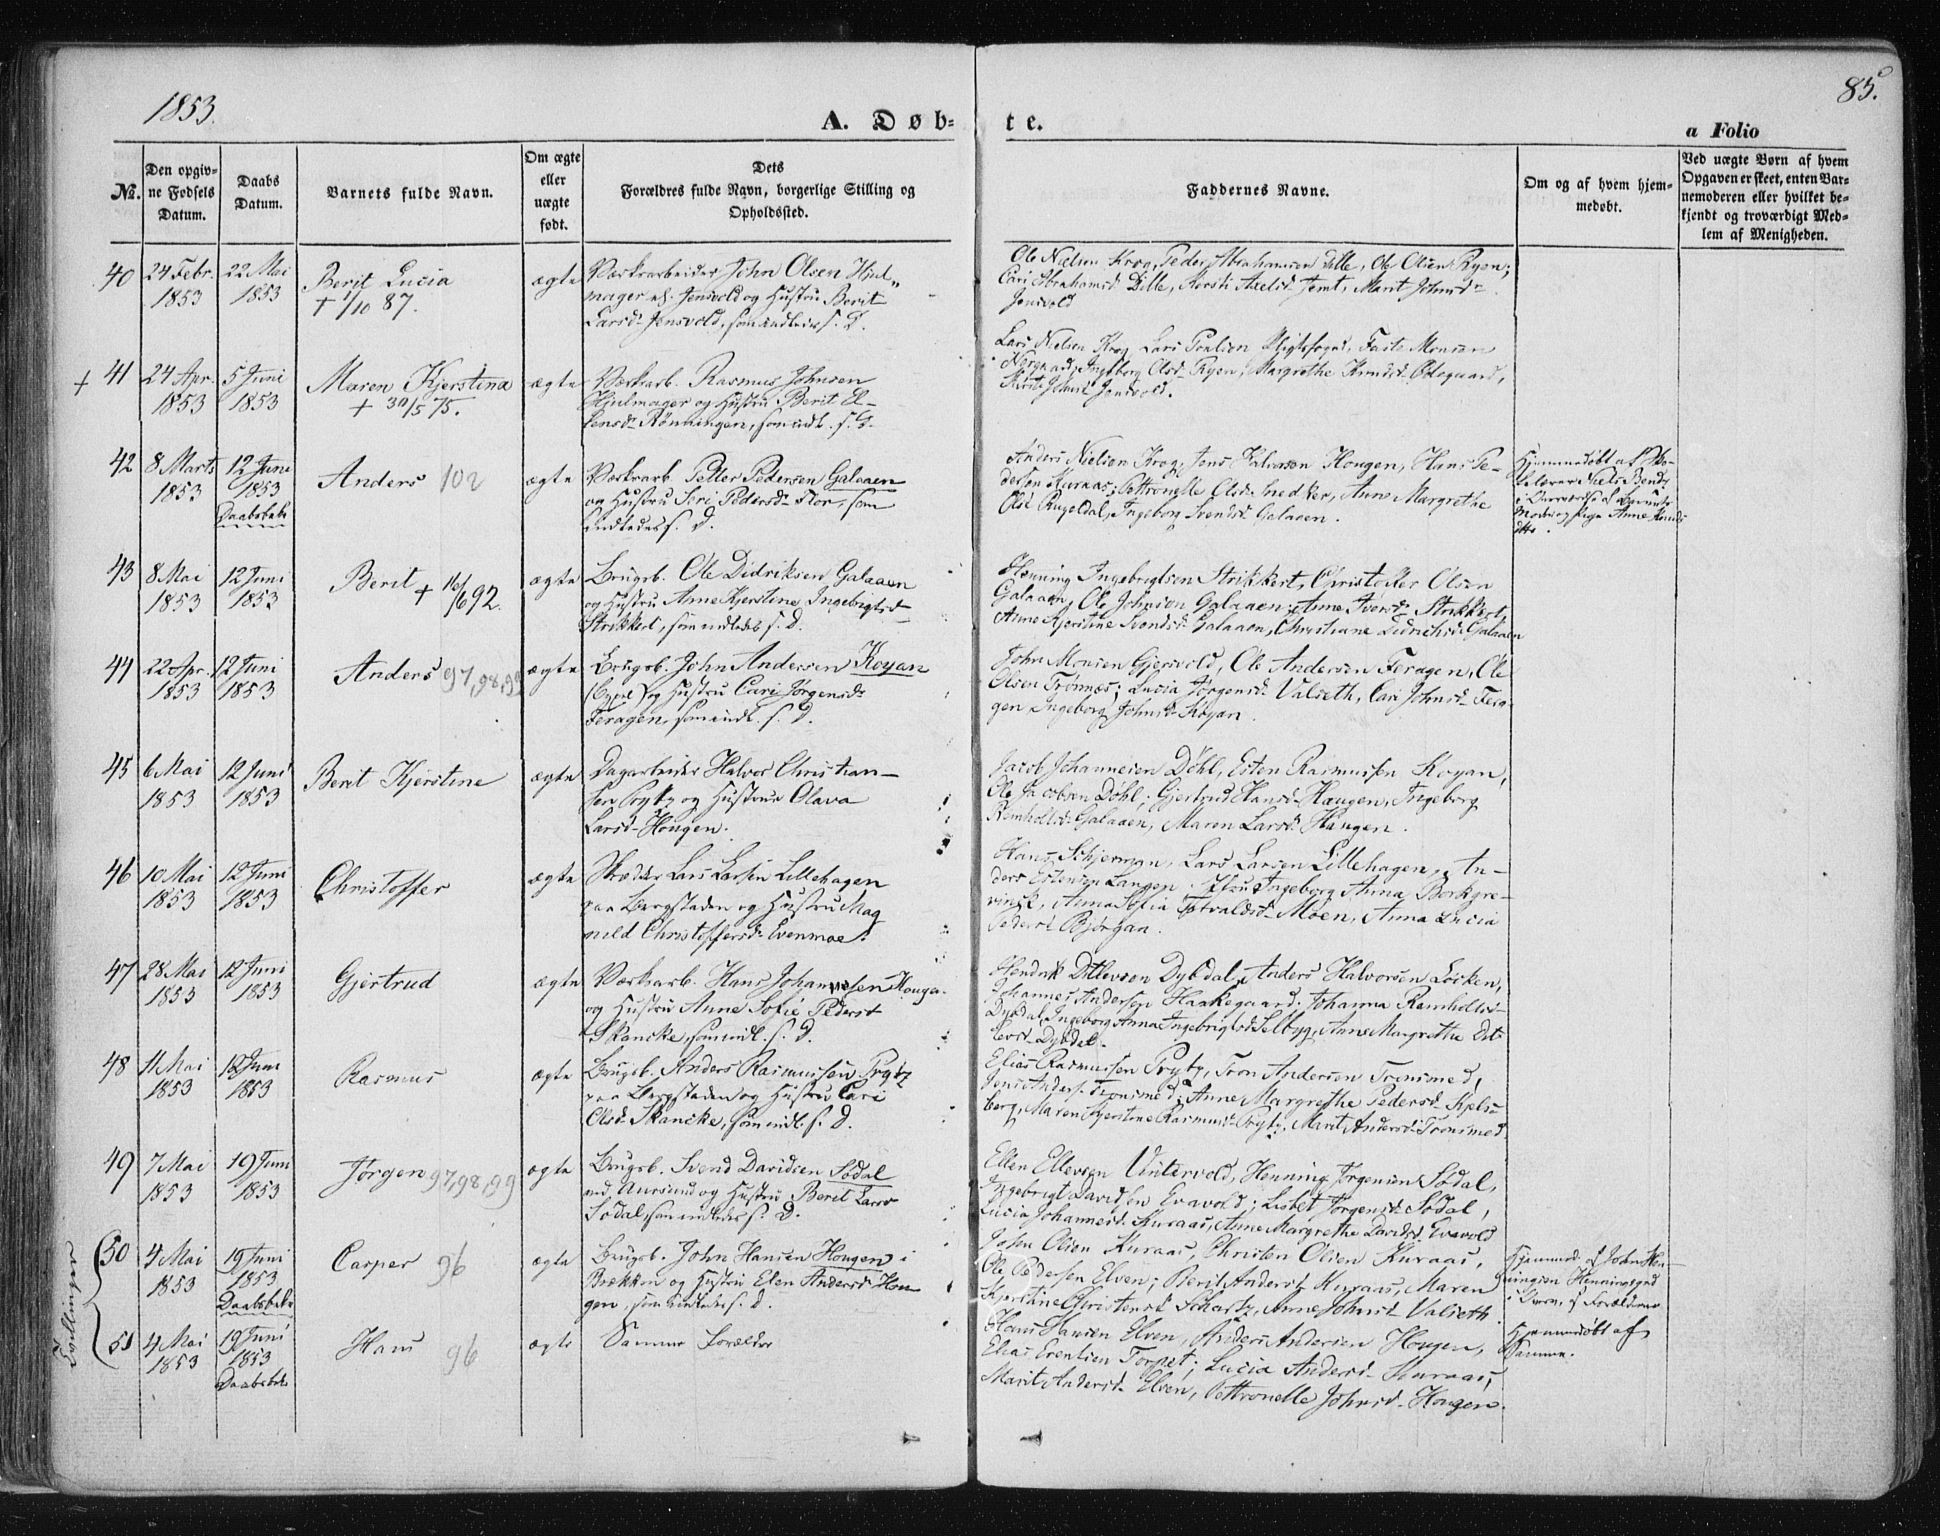 1853.
85.
A. Døb-
te.
a Folio
No.
Den opgiv-
ne Fødsels
Datum.
Daabs
Datum.
Barnets fulde Navn.
Om ægte
eller
uægte
født.
Dets
Forældres fulde Navn, borgerlige Stilling og
Opholdssted.
Faddernes Navne.
Om og af hvem hjem-
medøbt.
Ved uægte Børn af hvem
Opgaven er skeet, enten Bar-
nemoderen eller hvilket be-
kjendt og troværdigt Med-
lem af Menigheden.
40
24 Febr.
1853
22 Mai
1853
Berit Lucia
+ 1/10 87.
ægte
Værkarbeider John Olsen Hjul-
mager Jensvold og Hustru Berit
Larsd. Jensvold, som indledes s. D.
Ole Nielsen Krog, Peder Abrahamsen Dille, Ole Olsen Ryen;
Cari Abrahamsd Dille, Kersti Axelsd. Jemt, Marit Johnsd-
Jensvold
+
41
24 Apr.
1853
5 Juni
1853
Maren Kjerstina
+ 30/5 75.
ægte
Værkarb. Rasmus Johnsen
Hjulmager og Hustru Berit El-
lensd. Rönningen, som indl. s. D.
Lars Nielsen Krog, Lars Paulsen Floren, Monsen
Ingeborg Olsd. Ryen, Margrethe Ödegaard,
Johnsd. Jensvold.
42
8 Marts
1853
12 Juni
1853
Daabsbekr
Anders 102
ægte
Værkarb. Petter Pedersen Galaaen
og Hustru Siri Pedersd. Flor, som
indledes s. D.
Anders Nielsen Krog, Jens Halvorsen Hougen, Hans Pe-
dersen Kuraas; Pettronelle Olsd. Snedker, Anne Margrethe
Olsd Rugeldal, Ingeborg Svendsd. Galaaen.
Hjemmedøbt af Sko-
lelærer Niels Bendz
43
8 Mai
1853
12 Juni
1853
Berit + 16/6 92.
ægte
Brugsb. Ole Didriksen Galaaen
og Hustru Anne Kjerstine Ingebrigtsd
Strikkert, som indledes s. D.
Henning Ingebrigtsen Strikkert, Christoffer Olsen
Galaaen, Ole Johnsen Galaaen; Anne Iversd. Strikkert,
Anne Kjerstine Svendsd. Galaaen, Christiane Didrichsd. Galaaen
44
22 Apr.
1853
12 Juni
1853
Anders 97,98,99
ægte
Brugsb. John Andersen Kojan
og Hustru Cari Jörgensd.
Feragen, som indl. s. D.
John Monsen Gjersvold, Ole Andersen Feragen, Ole
Olsen Trönnes; Lucia Jörgensd. Valseth, Cari Johnsd. Fera
gen, Ingeborg Johnsd. Kojan.
45
6 Mai
1853
12 Juni
1853
Berit Kjerstine
ægte
Dagarbeider Halvor Christian-
sen Prytz og Hustrue Olava
Larsd. Hougen.
Jacob Johannesen Döhl, Esten Rasmussen Kojan,
Ole Jacobsen Döhl; Gjertrud Hansd. Haugen, Ingeborg
Remholtsd. Galaaen, Maren Larsd. Haugen.
46
10 Mai
1853
12 Juni
1853
Christoffer
ægte
Skræder Lars Larsen Lillehagen
paa Bergstaden og Hustru Mag
nild Christoffersd. Evenmoe.
Hans Schjerman, Lars Larsen Lillehagen, An-
ders Estensen Langen; Ingeborg Anna Borkgre-
vinck, Anna Sofia Totvaldsd. Moen, Anna Lucia
Pedersd Björgan.
47
28 Mai
1853
12 Juni
1853
Gjertrud
ægte
Værkarb. Hans Johannesen Hougen
og Hustru Anne Sofie Pedersd
Skancke, som indl. s. D.
Hendrik Ditlevsen Dybdal, Anders Halvorsen Løcken,
Johannes Andersen Haakegaard; Johanna Remholtsd
Dybdal, Ingeborg Anna Ingebrigtsd Selbyg, Anne Margrethe Dit
levsd. Dybdal.
48
11 Mai
1853
12 Juni
1853
Rasmus
ægte
Brugsb. Anders Rasmussen Prytz
paa Bergstaden og Hustru Cari
Olsd. Skancke, som indl. s. D.
Elias Rasmussen Prytz, Tron Andersen Tronsmed,
Jens Anders. Tronsmed; Anne Margrethe Pedersd. Kjels-
berg, Maren Kjerstine Rasmusd. Prytz, Marit Andersd. Tronsmed
49
7 Mai
1853
19 Juni
1853
Jörgen 97,98,99
ægte
Brugsb. Svend Davidsen Södal
ved Aursund og Hustru Berit Larsd
Södal, som indledes s. D.
Ellen Ellevsen Vintervold, Henning Jörgensen Södal,
Ingebrigt Davidsen Evavold; Lisbet Jörgensd. Södal,
Lucia Johannesd. Kuraas, Anne Margrethe Davidsd. Evavold
Tvillinger
50
4 Mai
1853
19 Juni
1853
Daabsbekr
Casper 96
ægte
Brugsb. John Hansen Hougen i
Brækken og Hustru Elen Andersd Hou
gen, som indledes s. D.
John Olsen Kuraas, Christen Olsen Kuraas,
Ole Pedersen Elven; Berit Andersd. Kuraas, Maren
Kjerstine Christensd. Schartz, Anne Johnsd Valseth
Hjemmed. af John Hen-
ningsen Henningsgrd
i Overv. af Forældrene
51
4 Mai
1853
19 Juni
1853
Daabsbekr
Hans 96
ægte
Samme Forældre
Hans Hansen Elven, Anders Andersen Hougen,
Elias Erentsen Torpet; Lucia Andersd. Kuraas,
Marit Andersd. Elven, Pettronelle Johnsd. Hougen.
Hjemmedöbt af
Samme.